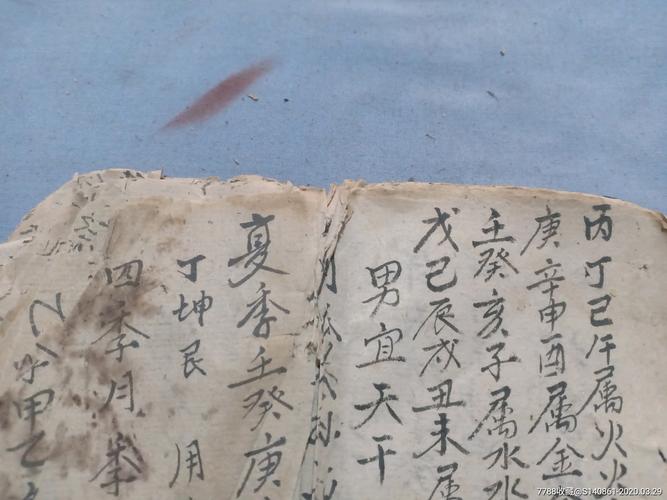 丙丁巳午属火火
庚辛申酉属金
壬癸亥子属水水
戊己辰戌丑未属
男宜天干
月
夏季壬癸庚
丁坤艮 用
四季月
乙
甲乙
7788收藏@S140861-2020.03.29